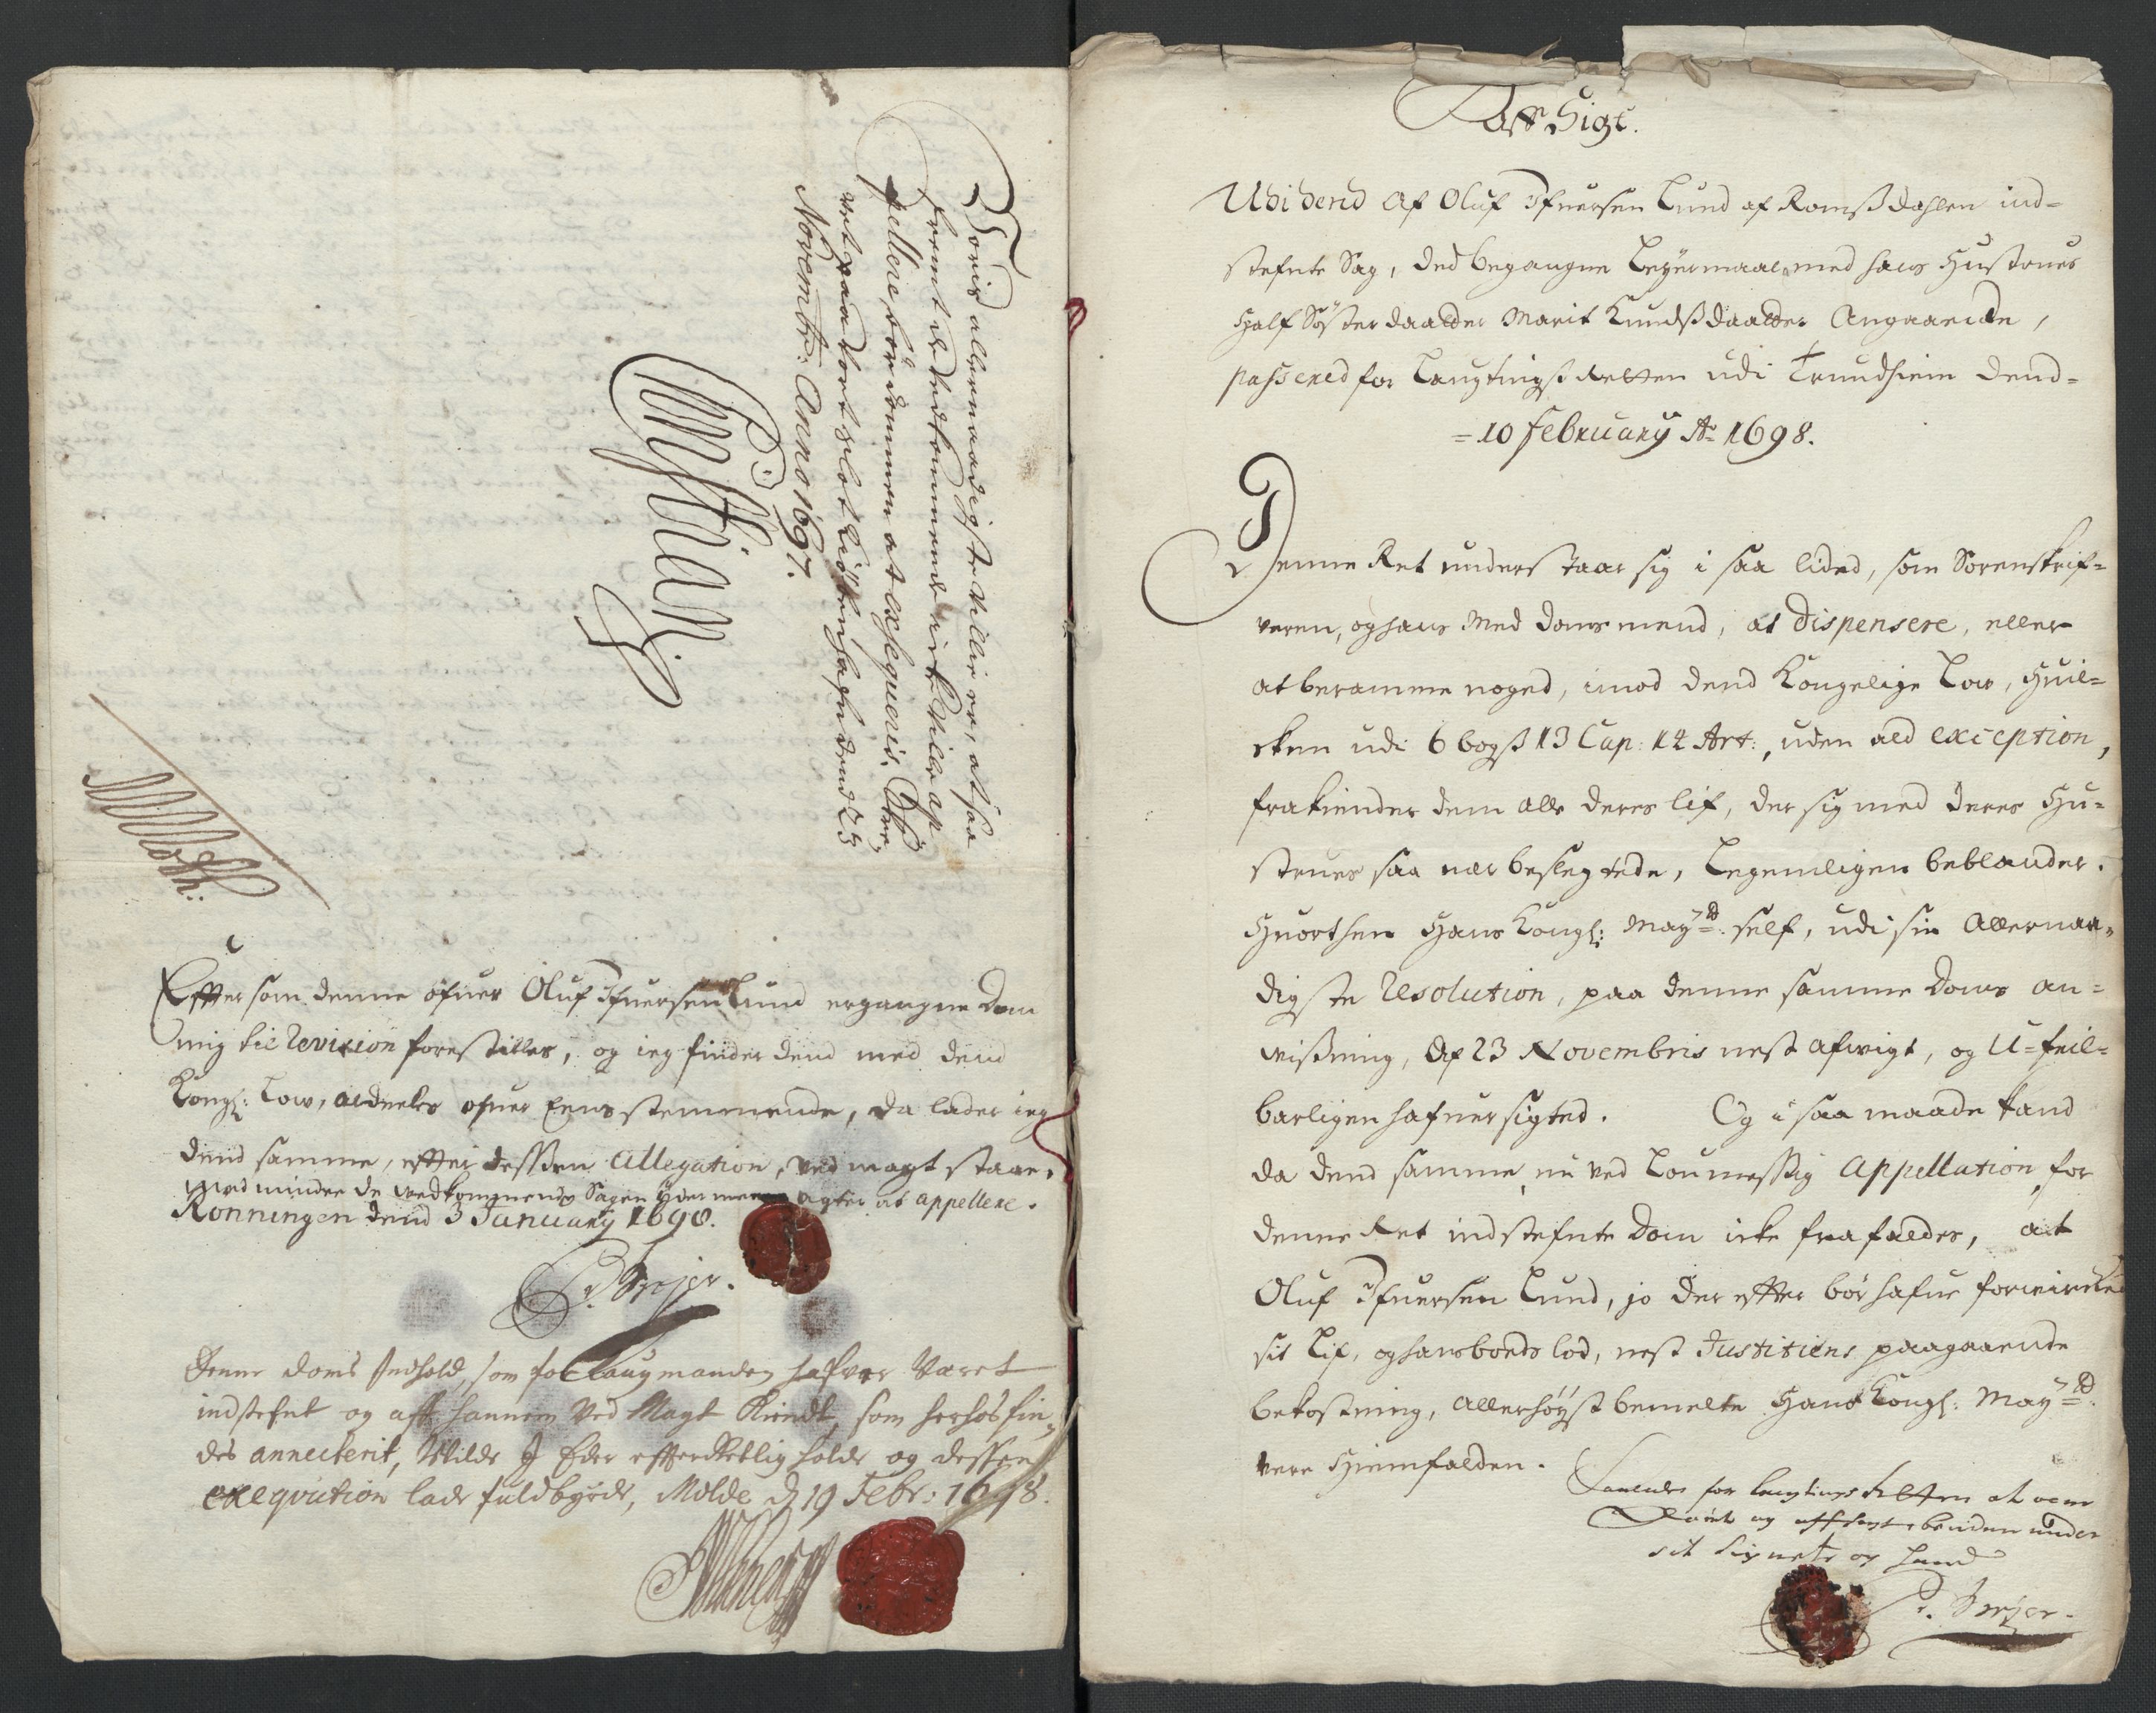 Voris allernaadigste Villie er, at saa
fremt de vedkommende icke Ville ap¬
pellere, bør dommen at exsequeris. Skre¬
vet paa vort slot Kiøbenhafn dend 23
Novembr: Anno 1697.
Christian
Moth:
Effter som denne ofuer Oluf Ifuersen Lund ergangne Dom
mig til revision forestilles, og ieg finder dend med dend
Kongl: Low, aldeeles ofuer Eens stemmende, da lader ieg
dend samme, effter dessen Allegation, ved magt staae,
med mindre de vedkommende Sagen ydermeere agter at appellere.
Rønningen dend 3 January 1698.
P. Dreyer.
Denne doms Indhold, som for Laugmanden hafver Været
indstefnt og aff hannem Ved Magt Kiendt, som herhos fin¬
des annecterit, Wilde I Eder efferrettlig holde og dessen
exeqvution lade fuldbyrde, Molde d 19 Febr: 1698.
Aff Sigt.
Udi dend af Oluf Ifuersen Lund af Romsdahlen ind=
stefnte Sag, Ded begangne Leyermaal med hans Hustrues
Half Søster daatter Marit Knudsdaatter Angaaende,
passered for Laugtings Retten udi Trundhiem dend=
=10 February Ao 1698.
Denne Ret understaar sig i saa lided, som Sorenskrif=
veren, og hans Med doms mend, at dispensere, eller
at beramme noged, imod dend Kongelige Low, Huil=
cken udi 6 bogs 13 Cap: 14 Art:, uden ald exception,
frakiender dem alle deres lif, der sig med deres Hu=
strues saa nær beslegtede, Legemligen beblander.
Huorhen Hans Kongl: Mayed: self, udi sin Allernaa=
digste Resolution, paa denne samme Doms an=
visning, Af 23 Novembris nest afvigt, og U=feil=
barligen hafuer sigted. Og i saa maade kand
da dend samme, nu ved Loumessig Appellation, for
denne Ret indstefnte Dom icke frafaldes, at
Oluf Ifuersen Lund, jo der effter bør hafue forwircket
sit Lif, og hans boeds lod, nest Justitiens paagaaende
bekostning, Allerhøyst bemelte Hans Kongl: Mayed:
vere Hiemfalden.
Saaledes for laugtings Retten at vere
Passerit og affsagt, bender under
sit Signete og Haand
P. Dreyer.